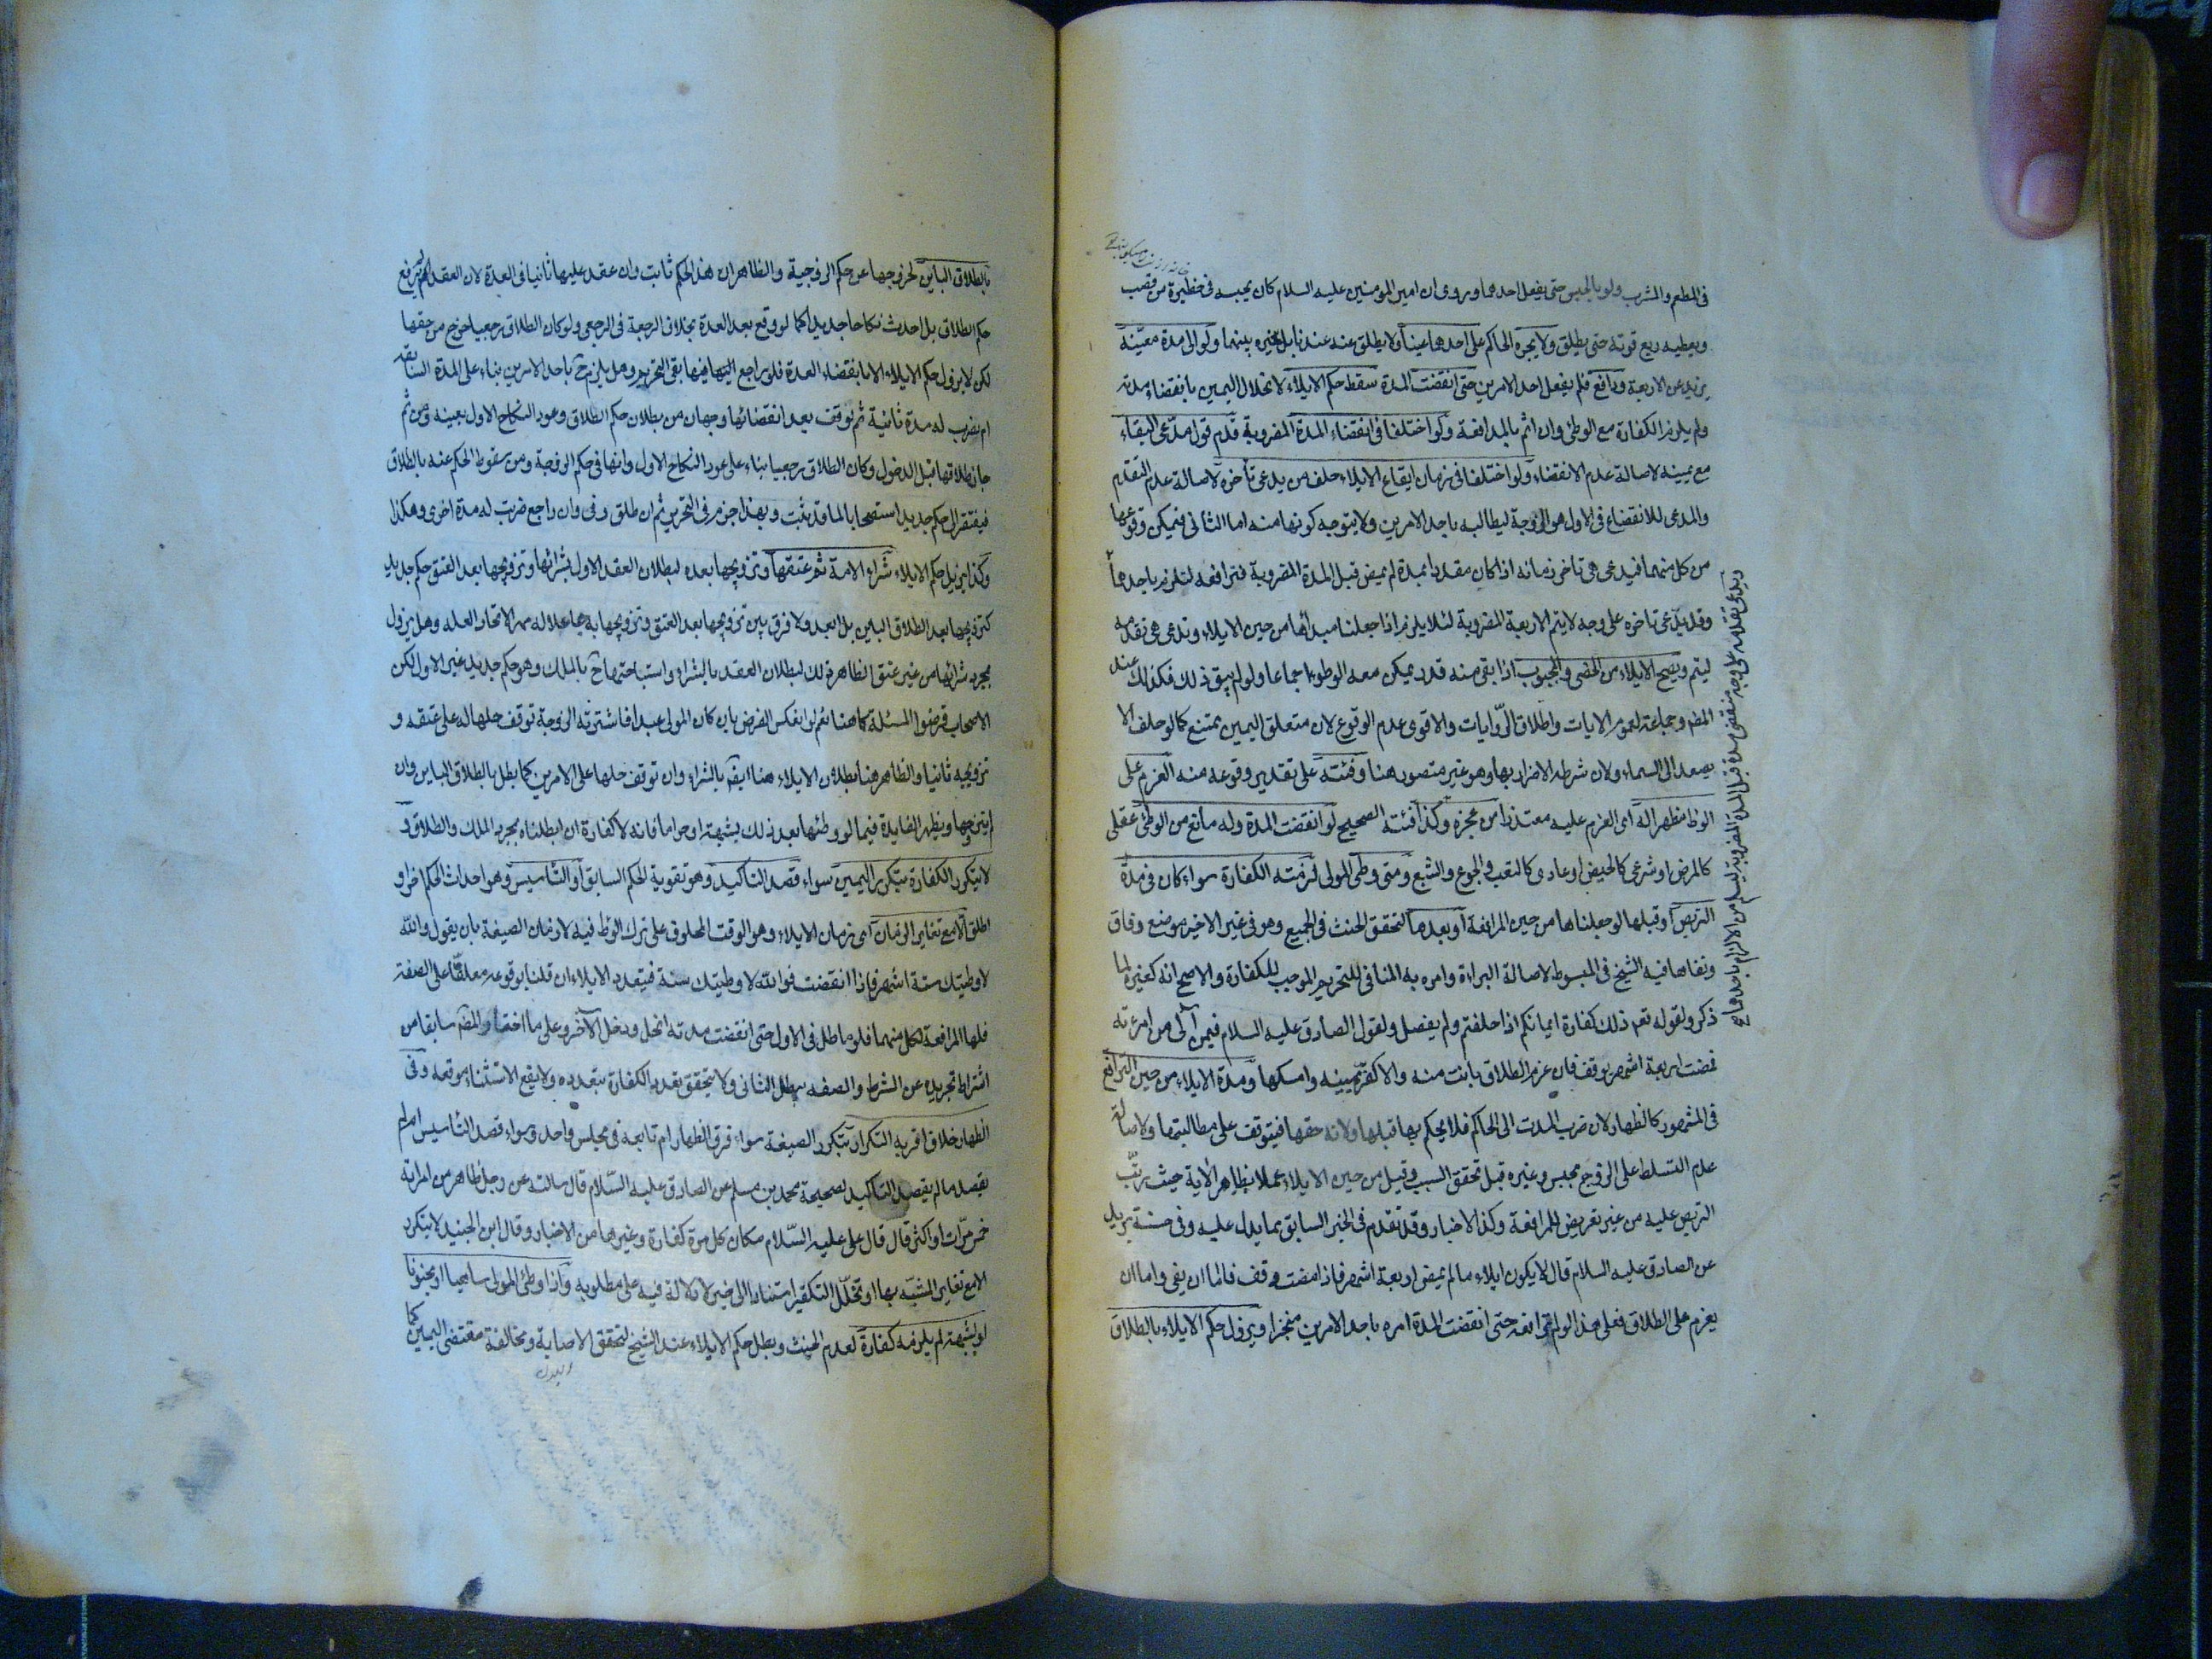 فى المطعم والمشرب ولو بالحبس حتى يفعل احدهما وروى ان امير المومنين عليه السلام كان يحبسه فى حظيرة من قصب
ويعطيه ربع قوته حتى يطلق ولا يجبره الحاكم على احدهما عينا ولا يطلق عنه عندنا بل يخيره بينهما ولو آلى مدة معينة
يزيد عن الاربعة ودافع فلم يفعل احد الامرين حتى انقضت المدة سقط حكم الايلاء لانحلال اليمين بانقضاء مدته
ولم يلزمه الكفارة مع الوطئ وان اثم بالمدافعة ولو اختلفا فى انقضاء المدة المضروبة قدم قول مدعى البقاء
مع يمينه لاصالة عدم الانقضاء ولو اختلفا فى زمان ايقاع الايلاء حلف من يدعى تأخره لاصالة عدم التقدم
والمدعى للانقضاء فى الاول هو الزوجة ليطالبه باحد الامرين ولا يتوجه كونها منه اما الثانى فيمكن وقوعها
من كل منهما فيدعى هى تاخر زمانه اذا كان مقدرا بمدة لم يمض قبل المدة المضروبة فترافعه لتلزمه باحدهما
وقد يدعى تاخره على وجه لا يتم الاربعة المضروبة لئلا يلزم اذا جعلنا مبدأها من حين الايلاء وتدعى هى تقدمه
ليتم ويصح الايلاء من الخصى والمجبوب اذا بقى منه قدر يمكن معه الوطوء اجماعا ولو لم يبق ذلك فكذلك عند
المصنف وجماعة لعموم الايات واطلاق الروايات والاقوى عدم الوقوع لان متعلق اليمين ممتنع كما لو حلف الا
يصعد الى السماء ولان شرطه الاضرار بها وهو غير متصور هنا وفئته على تقدير وقوعه منه العزم على
الوطئ مظهرا له اى العزم عليه معتذرا من عجزه وكذا فئته الصحيح لو انقضت المدة وله مانع من الوطئ عقلى
كالمرض او شرعى كالحيض او عادى كالتعب والجوع والشبع ومتى وطى المولى لزمته الكفارة سواء كان فى مدة
التربص او قبلها لو جعلناها من حين المرافعة او بعدها لتحقق الحنث فى الجميع وهو فى غير الاخير موضع وفاق
ونفاها فيه الشيخ فى المبسوط لاصالة البراءة وامره به المنافى للتحريم الموجب للكفارة والاصح انه كغيره لما
ذكر ولقوله تعم ذلك كفارة ايمانكم اذا حلفتم ولم يفصل ولقول الصادق عليه السلام فيمن آلى من امرءته
فمضت اربعة اشهر يوقف فان عزم الطلاق بانت منه والا كفر يمينه وامسكها ومدة الايلاء من حين الترافع
فى المشهور كالظهار لان ضرب المدت الى الحاكم فلا يحكم بها قبلها ولانه حقها فيتوقف على مطالبتها ولاصالة
عدم التسلط على الزوج بحبس وغيره قبل تحقق السبب وقيل من حين الايلاء عملا بظاهر الآية حيث رتب
التربص عليه من غير تعرض للمرافعة وكذا الاخبار وقد تقدم فى الخبر السابق ما يدل عليه وفى حسنة بريد
عن الصادق عليه السلام قال لا يكون ايلاء ما لم يمض اربعة اشهر فاذا مضت وقف فاما ان يفى واما ان
يعزم على الطلاق فعلى هذا لو لم ترافعه حتى انقضت المدة امره باحد الامرين منجزا ويزول حكم الايلاء بالطلاق
ويدعى تقدمه على وجه تنقضى مدة قبل المدة المضروبة ليسلم من الالزام باحدهما صح
بالطلاق الباين لخروجها عن حكم الزوجية والظاهر ان هذا الحكم ثابت وان عقد عليها ثانيا فى العدة لان العقد لم يرفع
حكم الطلاق بل احدث نكاحا جديدا كما لو وقع بعد العدة بخلاف الرجعة فى الرجعى ولو كان الطلاق رجعيا خرج من حقها
لكن لا يزول حكم الايلاء الا بانقضاء العدة فلو راجع اليها فيها بقى التحريم وهل يلزم ح باحد الامرين بناء على المدة السابقة
ام يضرب له مدة ثانية ثم توقف بعد انقضائها وجهان من بطلان حكم الطلاق وعود النكاح الاول بعينه ومن ثم
جاز طلاقها قبل الدخول وكان الطلاق رجعيا بناء على عود النكاح الاول وانها فى حكم الزوجة ومن سقوط الحكم عنه بالطلاق
فيفتقر الى حكم جديد استصحابا لما قد ثبت وبهذا جزم فى التحرير ثم ان طلق وفى وان راجع ضربت له مدة اخرى وهكذا
وكذا يزيل حكم الايلاء شراء الامة ثم عتقها وتزويجها بعده لبطلان العقد الاول بشرائها وتزويجها بعد العتق حكم جديد
كتزويجها بعد الطلاق الباين بل ابعد ولا فرق بين تزويجها بعد العتق وتزويجها به جاعلا له مهرا لاتحاد العلة وهل يزول
بمجرد شرائها من غير عتق الظاهر ذلك لبطلان العقد بالشراء واستباحتها ح بالملك وهو حكم جديد غير الاول لكن
الاصحاب فرضوا المسئلة كما هنا نعم لو انعكس الفرض بان كان المولى عبدا فاشترته الزوجة توقف حلها له على عتقه و
تزويجه ثانيا والظاهر هنا بطلان الايلاء هنا ايضا بالشراء وان توقف حلها على الامرين كما بطل بالطلاق الباين وان
لم يتزوجها ويظهر الفايدة فيما لو وطئها بعد ذلك بشبهة او حراما فانه لا كفارة ان ابطلناه بمجرد الملك والطلاق و
لا يتكرر الكفارة بتكرر اليمين سواء قصد التاكيد وهو تقوية الحكم السابق او التاسيس وهو احداث الحكم اخر او
اطلق الا مع تغاير الزمان اى زمان الايلاء وهو الوقت المحلوف على ترك الوطئ فيه لا زمان الصيغة بان يقول والله
لا وطيتك ستة اشهر فاذا انقضت فوالله لا وطيتك سنة فيتعدد الايلاء ان قلنا بوقوعه معلقا على الصفة
فلها المرافعة لكل منهما فلو ماطل فى الاول حتى انقضت مدته انحل ودخل الآخر وعلى ما اختاره المصنف سابقا من
اشتراط تجريده عن الشرط والصفه يبطل الثانى ولا يتحقق تعدد الكفارة بتعدده ولا يقع الاستثناء موقعه وفى
الظهار خلاف اقربه التكرار بتكرر الصيغة سواء فرق الظهار ام تابعه فى مجلس واحد وسواء قصد التاسيس ام لم
يقصد ما لم يقصد التاكيد لصحيحة محمد بن مسلم عن الصادق عليه السلام قال سالته عن رجل ظاهر من امراته
خمس مرات او اكثر قال قال على عليه السلام مكان كل مرة كفارة وغيرها من الاخبار وقال ابن الجنيد لا يتكرر
الا مع تغاير المشبه بها او تخلل التكفير استنادا الى خبر لا دلالة فيه على مطلوبه واذا وطئ المولى ساهيا او مجنونا
او لشبهة لم يلزمه كفارة لعدم الحنث وبطل حكم الايلاء عند الشيخ لتحقق الاصابة ومخالفة مقتضى اليمين كما